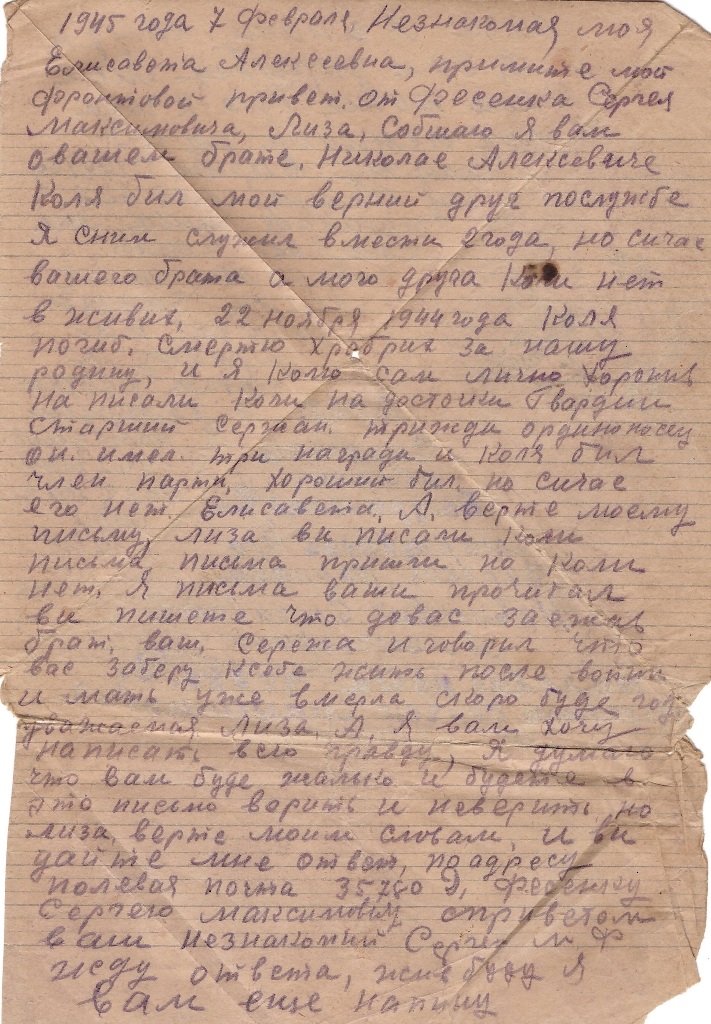 1945 года 7 февраля, Незнакомая моя
Елисавета Алексеевна, примите мой
фронтовой привет. от Фесенка Сергея
Максимовича, Лиза, Собшаю я вам
о вашем брате. Николае Алексевиче
Коля бил мой верний друг послужбе
Я сним служил вмести 2 года, но сичас
вашего брата а мого друга Коли нет
в живих, 22 ноября 1944 года Коля
погиб. смертю храбрих за нашу
родину, и я Колю сам лично хоронив
на писали Коли на досточки Гвардии
старший сержан. трижди ординоносец
он. имел. три награди и Коля бил
член парти, хороший бил. но сичас
его нет. Елисавета. А. верте моему
письму, лиза ви писали Коли
письма, письма пришли но Коли
нет. Я письма ваши прочитал
ви пишете что довас заежав
брат. ваш. Сережа и говорил что
вас заберу ксебе жить после войни
и мать уже вмерла скоро буде год
уважаемая Лиза. А. Я вам хочу
написать всю правду, Я думаю
что вам буде жалько и будете в
это письмо верить и неверить, но
лиза. верте моим словам, и ви
дайте мне ответ, по адресу
полевая почта 35780 Д, Фесенку
Сергею Максимовичу спрветом
ваш незнакомий Сергей М. Ф
жеду ответа, жив буду я
вам еще напишу